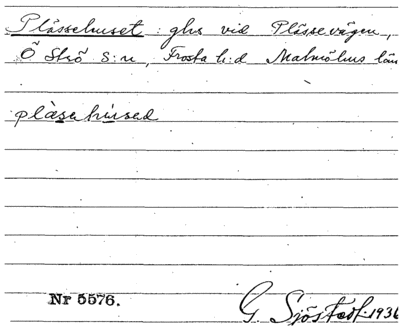 Plässehuset : ghs vid Plässevägen,
Ö Strö s:n, Frosta h:d Malmöhus län
plàsehúsed
Nr 5576.
G. Sjöstedt. 1936